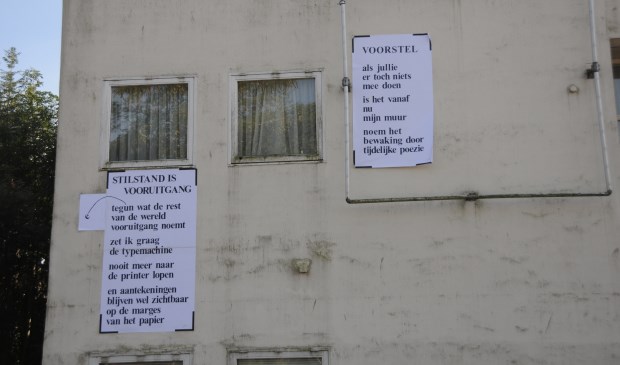 STILSTAND IS
VOORUITGANG
tegun wat de rest
van de wereld
vooruitgang noemt
zet ik graag
de typemachine
nooit meer naar
de printer lopen
en aantekeningen
blijven wel zichtbaar
op de marges
van het papier
VOORSTEL
als jullie
er toch niets
mee doen
is het vanaf
nu
mijn muur
noem het
bewaking door
tijdelijke poezie